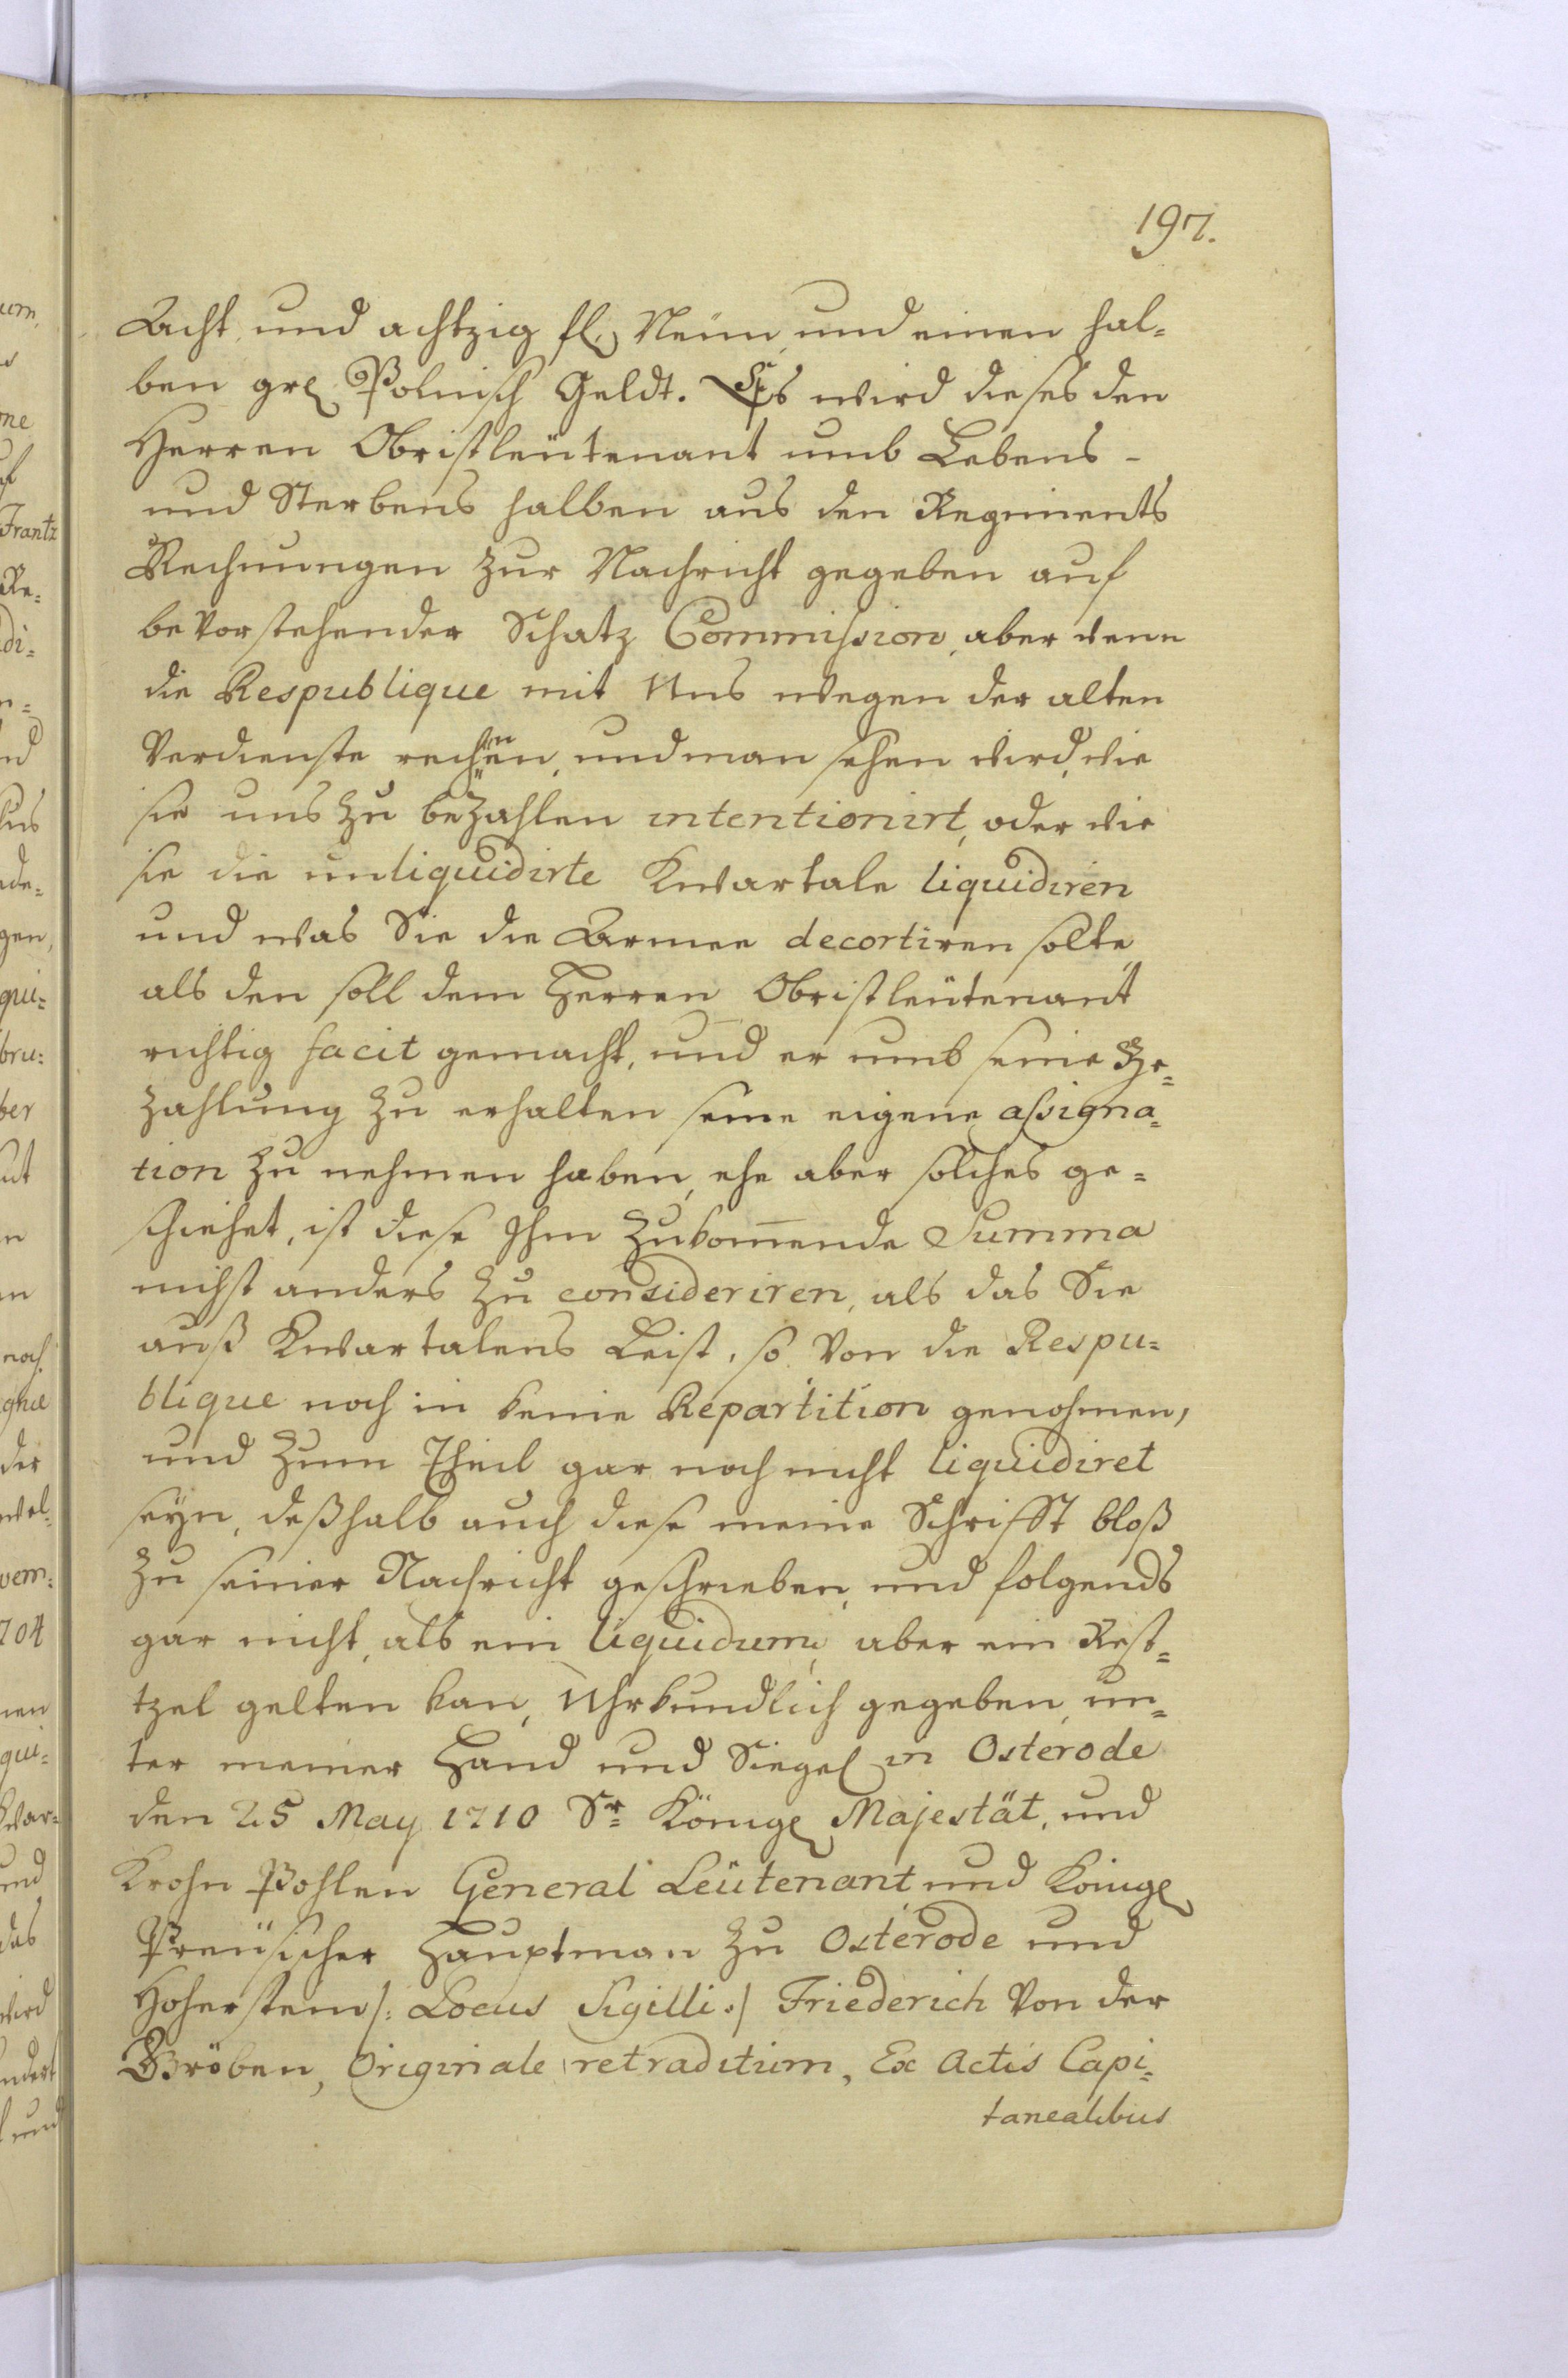 197.
Acht und achtzig fl. Neün und einen hal-
ben grl Polnisch Geldt. Es wird dieses den
Herren Obristleütenant umb Lebens-
und Sterbens halben aus den Regiments
Rechnungen zur Nachricht gegeben auf
bevorstehender Schatz Commission, aber wenn
die Respublique mit Uns wegen der alten
Verdienste rechnen, und man sehen wird, wie
sie uns zu bezahlen intentionirt, oder wie
sie die unliquidirte Kwartale liquidiren
und was Sie die Armee decortiren solte,
als den soll dem Herren Obristleütenant
richtig facit gemacht, und er umb seine Be-
zahlung zu erhalten seine eigene assigna-
tion zu nehmen haben, ehe aber solches ge-
schiehet, ist diese Ihm zukom̄ende Summa
nicht anders zu consideriren, als das Sie
auß Kwartalens Leist, so von die Respu-
blique noch in keine Repartition genohmen,
und zum Theil gar noch nicht liquidiret
seyn, deßhalb auch diese meine Schrifft bloß
zu seiner Nachricht geschrieben, und folgends
gar nicht, als ein liquidum, aber ein Rest-
tzel gelten kan, Uhrkundlich gegeben, un-
ter meiner Hand und Siegel in Osterode
den 25 May 1710 Sr Königl Majestät, und
Krohn Pohlen General Leütenant und Königl
Preüsischer Hauptman zu Osterode und
Hohenstein /: Locus Sigilli :/ Friederich von der
Gröben, Originale retraditum, Ex Actis Capi-
tanealibus